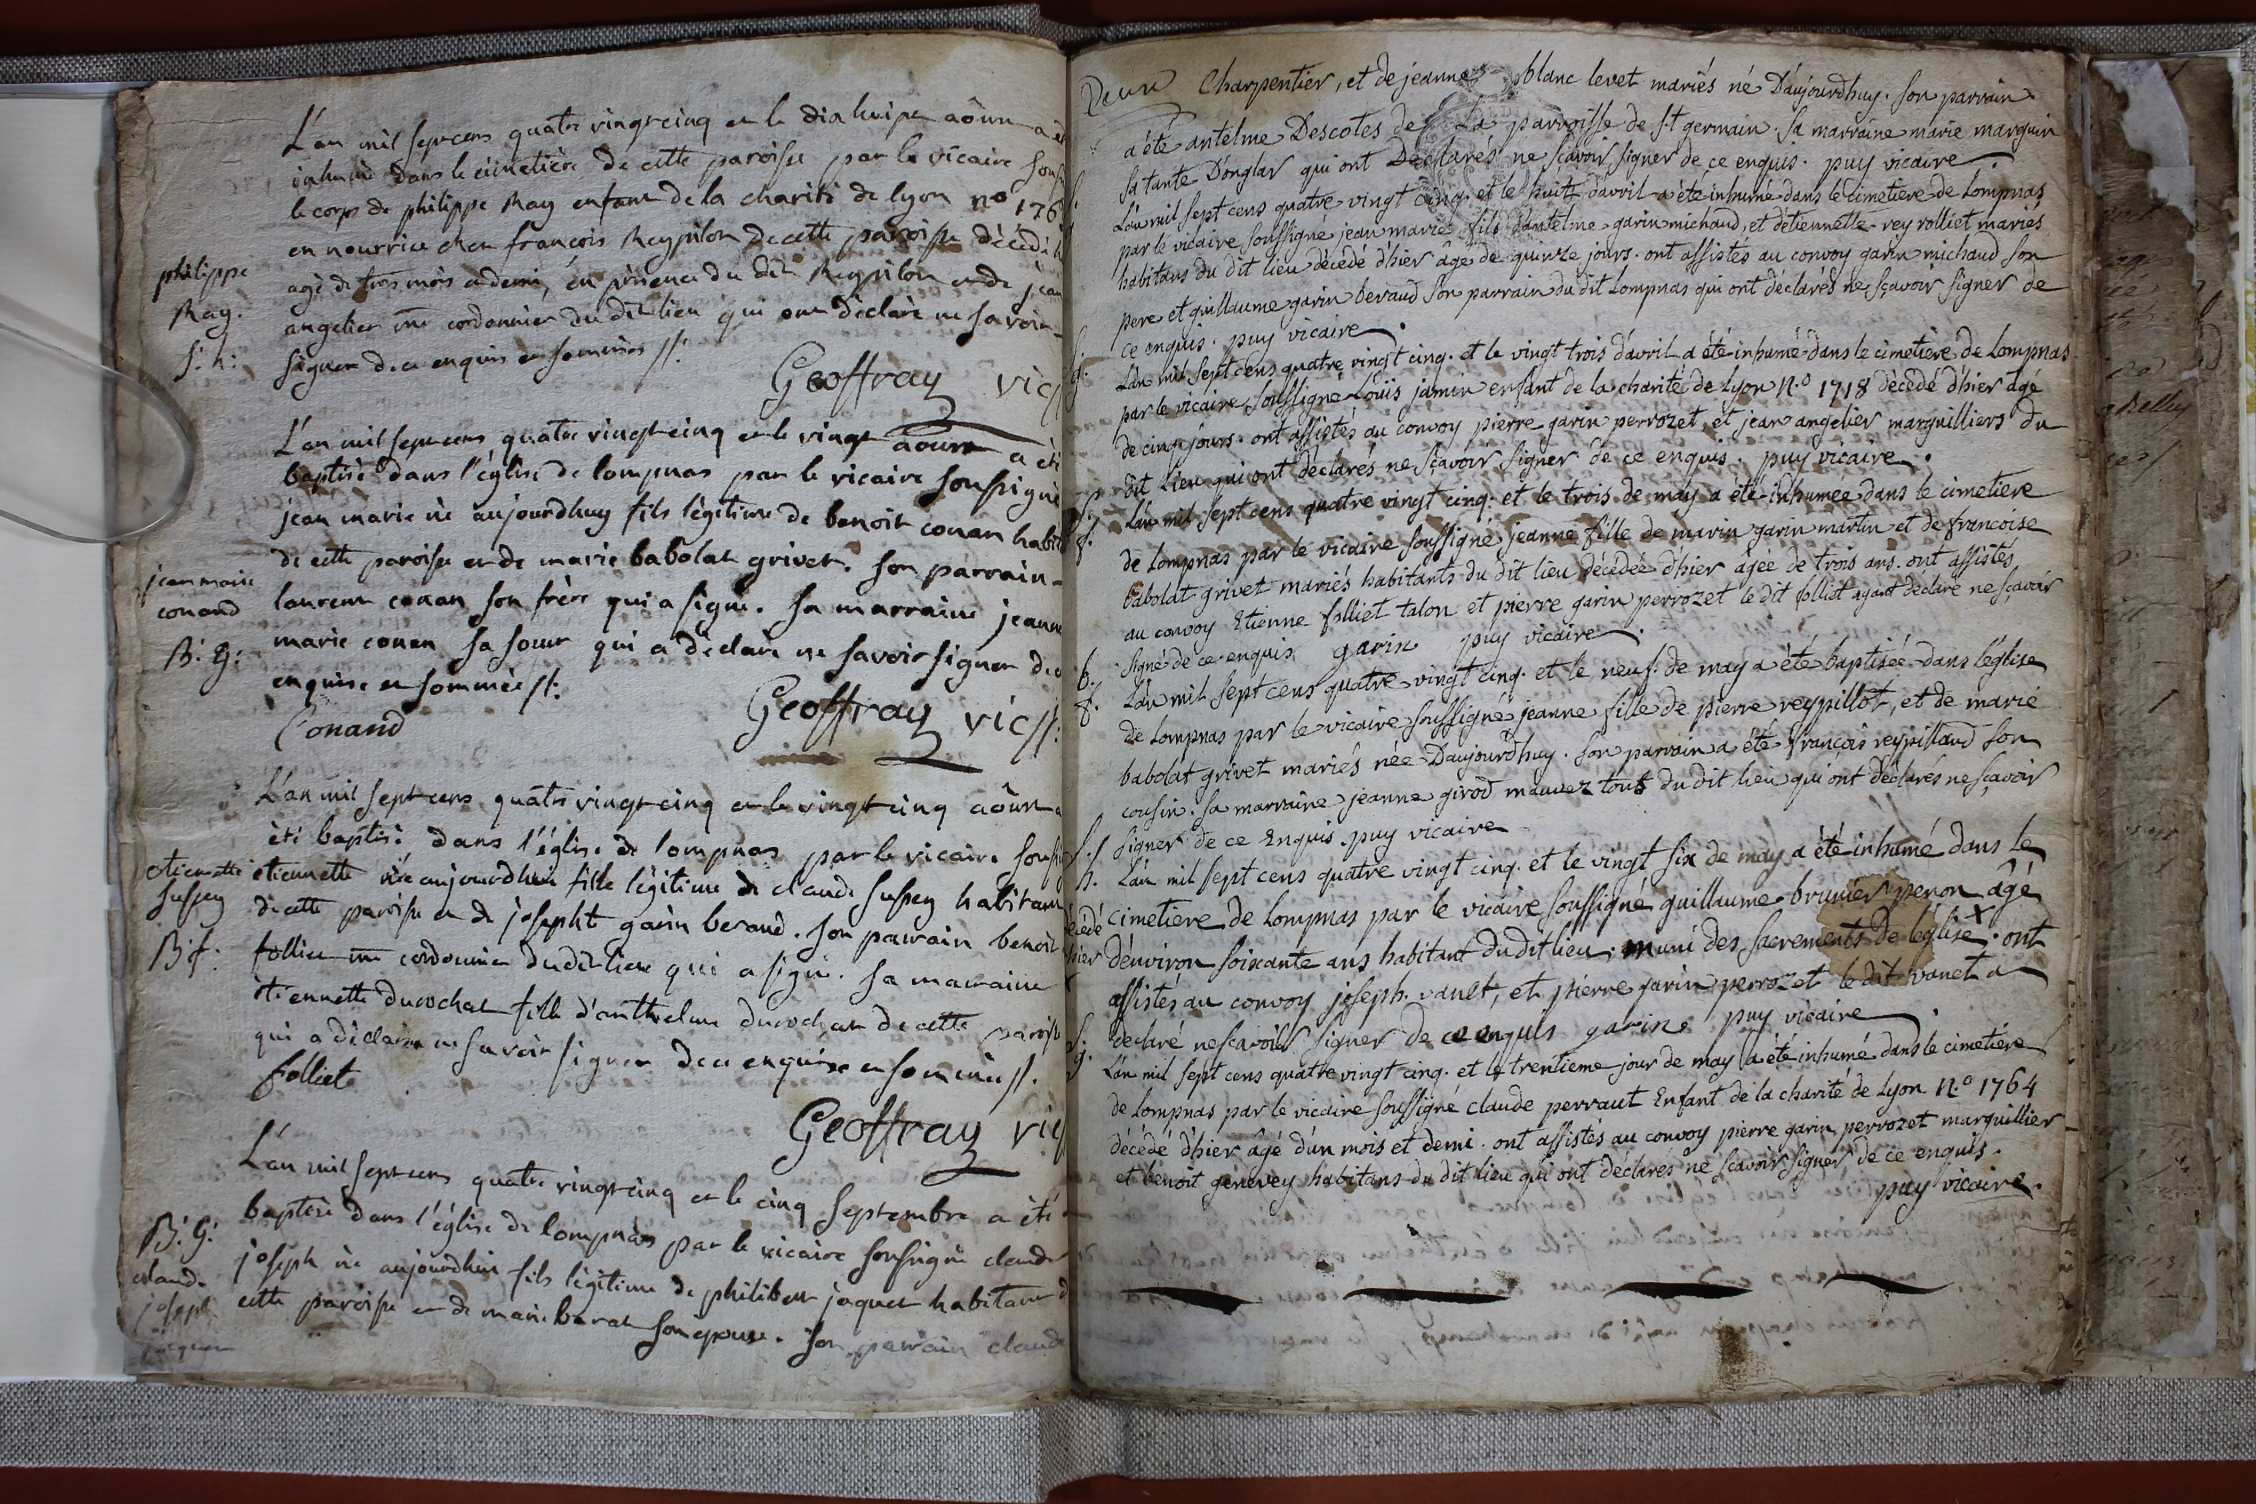 L'an mil sept cens quatre vingt cinq et le dix huit aôust a été
inhumé dans le cimetière de cette paroisse par le vicaire sous
le corps de philippe Ray enfant de la charité de lyon no 176
en nourrice chez françois Reypilon de cette paroisse décédé h
philippe
agé de trois mois et demi, en présence du dit Reypilon et de jean
Ray.
angelier me cordonnier du dit lieu qui ont déclaré ne savoir
S. h:
signer de ce enquis et sommés //:
Geoffray vic//
L'an mil sept cens quatre vingt cinq et le vingt aoust a été
baptisé dans l'église de lompnas par le vicaire soussigné
jean marie né aujourdhuy fils légitime de benoit conan habit
de cette paroisse et de marie babolat grivet. son parrain
jean marie
conand
laurent conan son frère qui a signé. sa marraine jeanne
marie conan sa soeur qui a déclaré ne savoir signer de ce
B. G:
enquise et sommée //:
Conand
Geoffray vic//:
L'an mil sept cens quatre vingt cinq et le vingt cinq aôust a
été baptisé dans l'église de lompnas par le vicaire soussi
etiennette
etiennette née aujourdhui fille légitime de claude suspey habitant
suspey
de cette paroisse et de josepht garin beraud. son parrain benoit
B. f.
folliet me cordonnier du dit lieu qui a signé. sa marraine
étiennette ducrochat fille d'anthelme ducrochat de cette paroisse
qui a déclaré ne savoir signer de ce enquise et sommée //.
folliet
Geoffray vic//
L'an mil sept cens quatre vingt cinq et le cinq septembre a été
B. G:
baptisé dans l'église de lompnas par le vicaire soussigné claude
claude
joseph né aujourdhui fils légitime de philibert jaquet habitant d
joseph
cette paroisse et de marie barat son épouse. son parrain claude
jaquet
Charpentier, et de jeanne blanc levet mariés né D'aujourdhuy. son parrain
a été antelme Descotes de La parroisse de St germain. sa marraine marie marguin
sa tante Donglas qui ont Déclarés ne sçavoir signer de ce enquis. puy vicaire.
L'an mil sept cens quatre vingt cinq. et le huit d'avril a été inhumé dans le cimetiere de Lompnas
par le vicaire soussigné jean marie fils d'antelme garin michaud, et d'etiennette rey rolliet mariés
habitans du dit lieu décédé d'hier âgé de quinze jours. ont assistés au convoy garin michaud son
pere et guillaume garin beraud son parrain du dit Lompnas qui ont déclarés ne sçavoir signer de
ce enquis. puy vicaire.
S.
g.
L'an mil sept cens quatre vingt cinq. et le vingt trois d'avril a été inhumé dans le cimetiere de Lompnas
par le vicaire soussigné Loüis jamin enfant de la charité de Lyon N.o 1718 décédé d'hier âgé
de cinq jours. ont assistés au convoy pierre garin perrozet, et jean angelier marguilliers du
dit Lieu qui ont déclarés ne sçavoir signer de ce enquis. puy vicaire.
S.
f.
L'an mil sept cens quatre vingt cinq. et le trois de may a été inhumée dans le cimetiere
de Lompnas par le vicaire soussigné jeanne fille de marin garin martin et de françoise
babolat grivet mariés habitants du dit lieu décédée d'hier âgée de trois ans. ont assistés
au convoy Etienne folliet talon et pierre garin perrozet le dit folliet ayant déclaré ne sçavoir
signé de ce enquis garin puy vicaire.
b.
f.
L'an mil sept cens quatre vingt cinq. et le neuf de may a été baptisée dans l'église
de Lompnas par le vicaire soussigné jeanne fille de pierre reypillot, et de marie
babolat grivet mariés née D'aujourdhuy. son parrain a été françois reypilland son
cousin. sa marraine jeanne girod mauvez tous du dit lieu qui ont déclarés ne sçavoir
signer de ce Enquis. puy vicaire
S.
h.
L'an mil sept cens quatre vingt cinq. et le vingt six de may a été inhumé dans le
cimetiere de Lompnas par le vicaire soussigné guillaume brunier penon âgé
décédé
hier
d'environ soixante ans habitant du dit lieu. muni des sacrements de l'église X. ont
assistés au convoy joseph vanet, et pierre garin perrozet le dit vanet a
declaré ne scavoir signer de ce enquis garin puy vicaire.
S.
g.
L'an mil sept cens quatre vingt cinq. et le trentieme jour de may a été inhumé dans le cimetiere
de Lompnas par le vicaire soussigné claude perraut Enfant de la charité de Lyon N.o 1764
décédé d'hier âgé d'un mois et demi. ont assistés au convoy pierre garin perrozet marguillier
et benoit genevey habitans du dit lieu qui ont déclarés ne sçavoir signer de ce enquis.
puy vicaire.